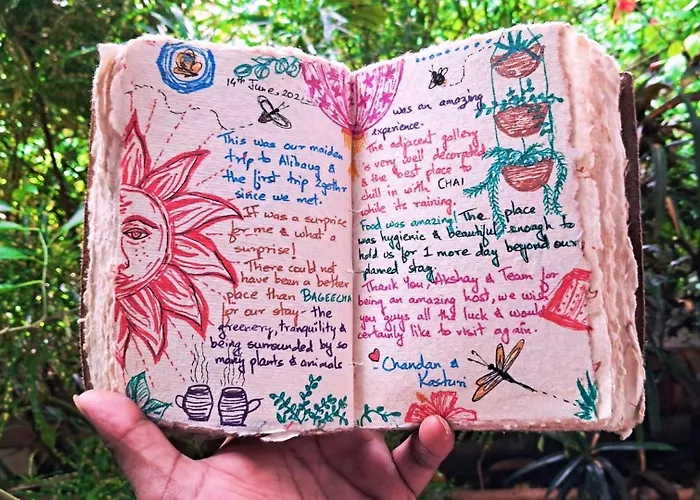 14th June, 202
This was our maiden
trip to Alibaug &
the first trip 2gethr
since we met.
It was a surprise
for me & what a
surprise!
There could not
have been a better
place than BAGEECHA
for our stay - the
greenery, tranquility &
being surrounded by so
many plants & animals
was an amazing
experience.
The adjacent gallery
is very well decorated
& the best place to
chill in with CHAI
while its raining.
Food was amazing! The place
was hygienic & beautiful enough to
hold us for 1 more day beyond our
planned stay.
Thank You Akshay & Team for
being an amazing host, we wish
you guys all the luck & would
certainly like to visit again.
- Chandan &
Kasturi